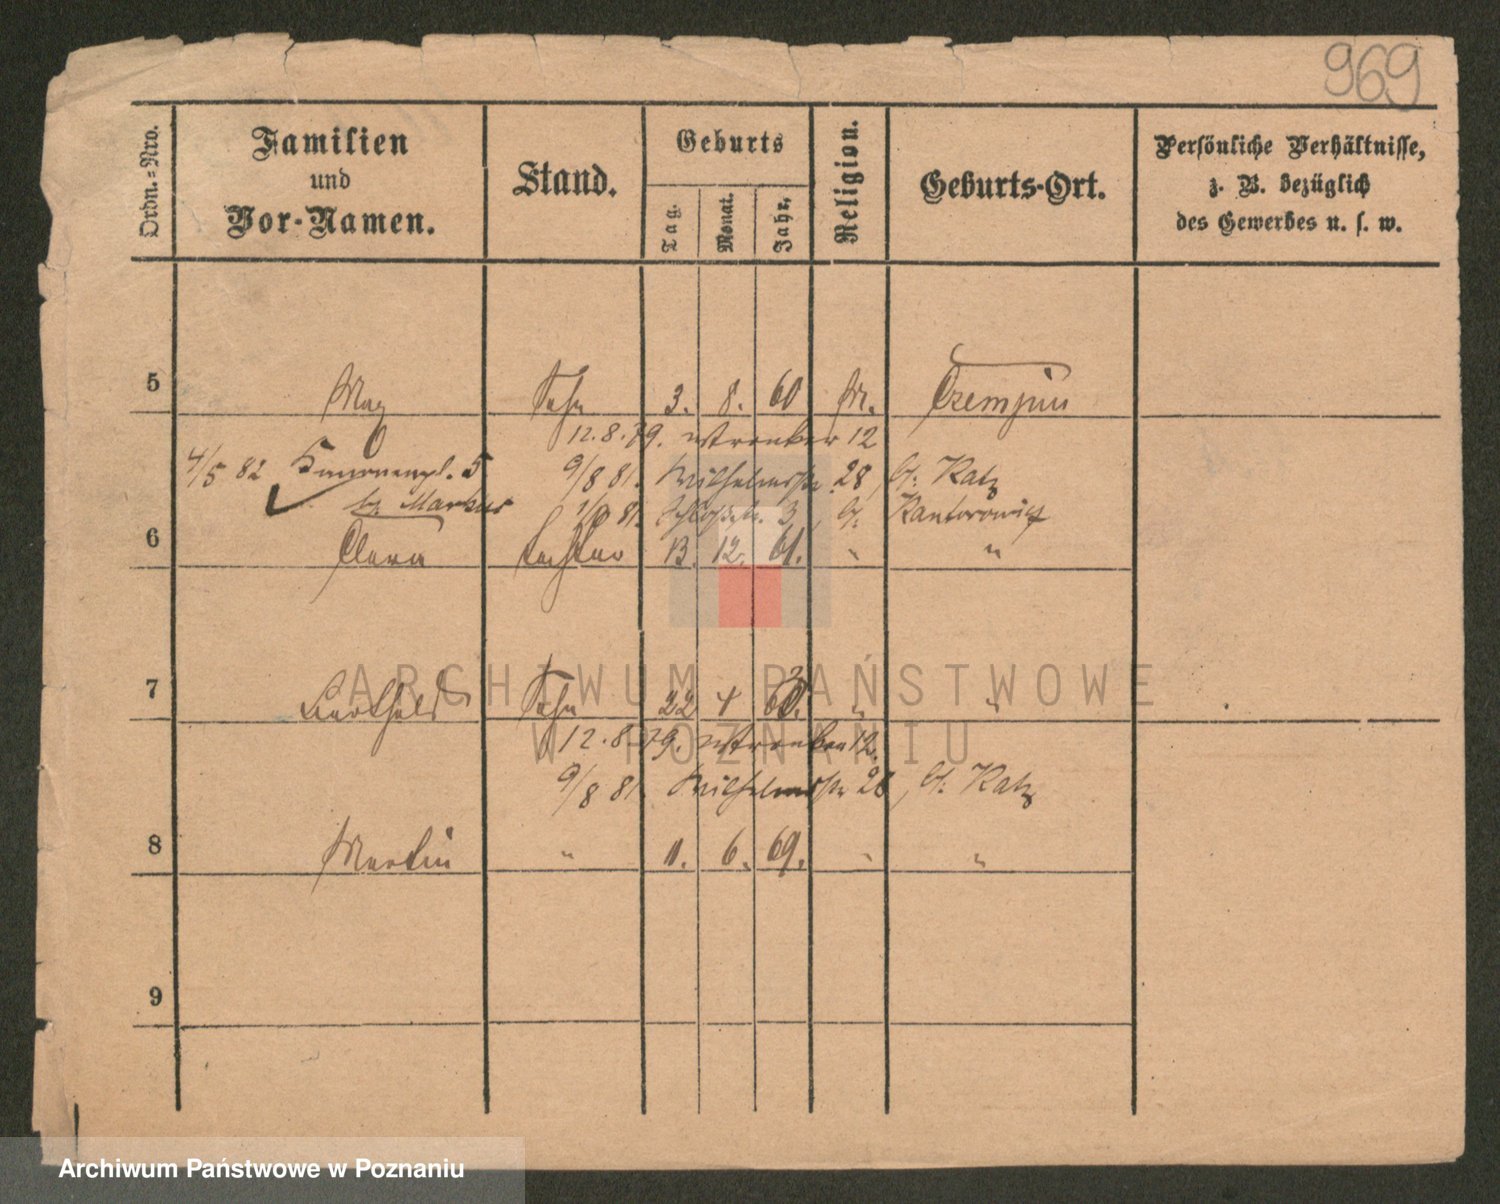 969
Ordn.-Nro.
Familien
und
Vor-Namen.
Stand.
Geburts
Tag.
Monat.
Jahr.
Religion.
Geburts-Ort.
Persönliche Verhältnisse,
z. B. bezüglich
des Gewerbes u. s. w.
5 Max Sohn 3. 8. 60 M. Czempin
12. 8. 79. Wronker 12
4/5 82 5 9/8 81. Wilhelmstr. 28, b. Katz
b. Markus 1/9 81. Schloßstr. 3, b. Kantorowicz
6 Clara Tochter 13. 12. 61. " "
7 Berthold Sohn 22 4 " "
12. 8. 79. Wronker 12.
9/8 81 Wilhelmstr 28, b. Katz
8 Martin " 11. 6. 69. " "
9
ARCHIWUM PAŃSTWOWE
W POZNANIU
Archiwum Państwowe w Poznaniu